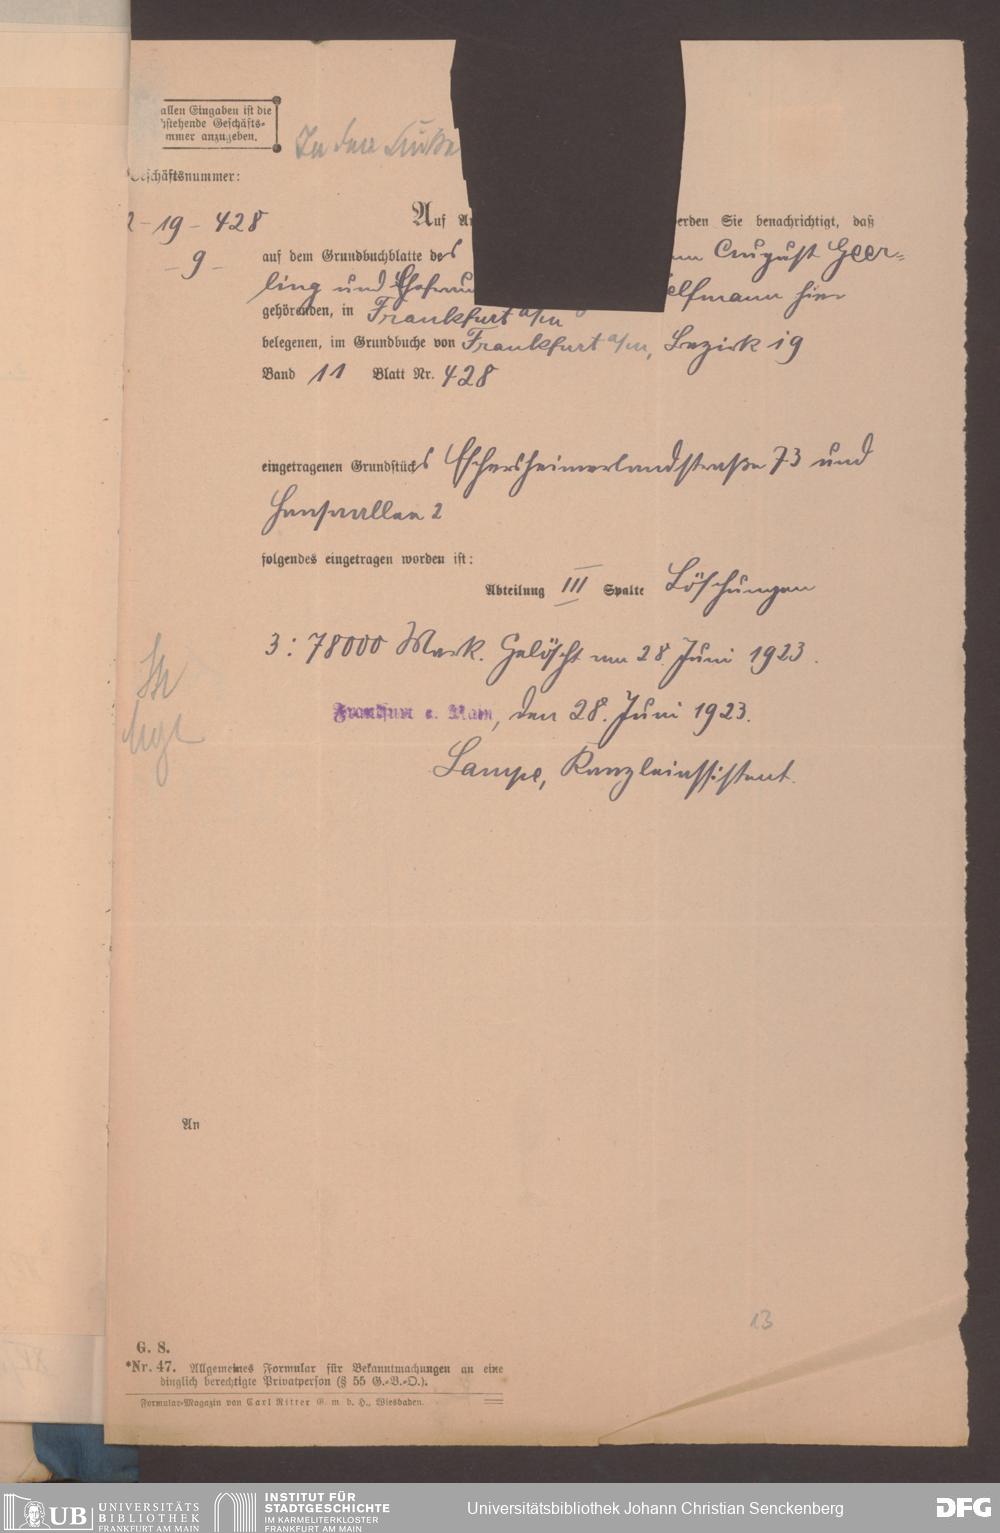 allen Eingaben ist die
hstehende Geschäfts-
mmer anzugeben.
In den
Geschäftsnummer:
2-19-428
-9-
Auf An
erden Sie benachrichtigt, daß
auf dem Grundbuchblatte des
nn August Geer-
ling und Ehefrau
elfmann hier
gehörenden, in Frankfurt a/m
belegenen, im Grundbuche von Frankfurt a/m, Bezirk 19
Band 11 Blatt Nr. 428
eingetragenen Grundstücks Eschersheimerlandstraße 73 und
Hansaallee 2
folgendes eingetragen worden ist:
Abteilung III Spalte Löschungen
3: 78000 Mark. Gelöscht am 28. Juni 1923.
Frankfurt a. Main, den 28. Juni 1923.
Lampe, Kanzleiassistent.
An
13
G. S.
*Nr. 47. Allgemeines Formular für Bekanntmachungen an eine
dinglich berechtigte Privatperson (§ 55 G.-B.-O.).
Formular-Magazin von Carl Ritter G. m. b. H., Wiesbaden.
UB UNIVERSITÄTS
BIBLIOTHEK
FRANKFURT AM MAIN
INSTITUT FÜR
STADTGESCHICHTE
IM KARMELITERKLOSTER
FRANKFURT AM MAIN
Universitätsbibliothek Johann Christian Senckenberg
DFG